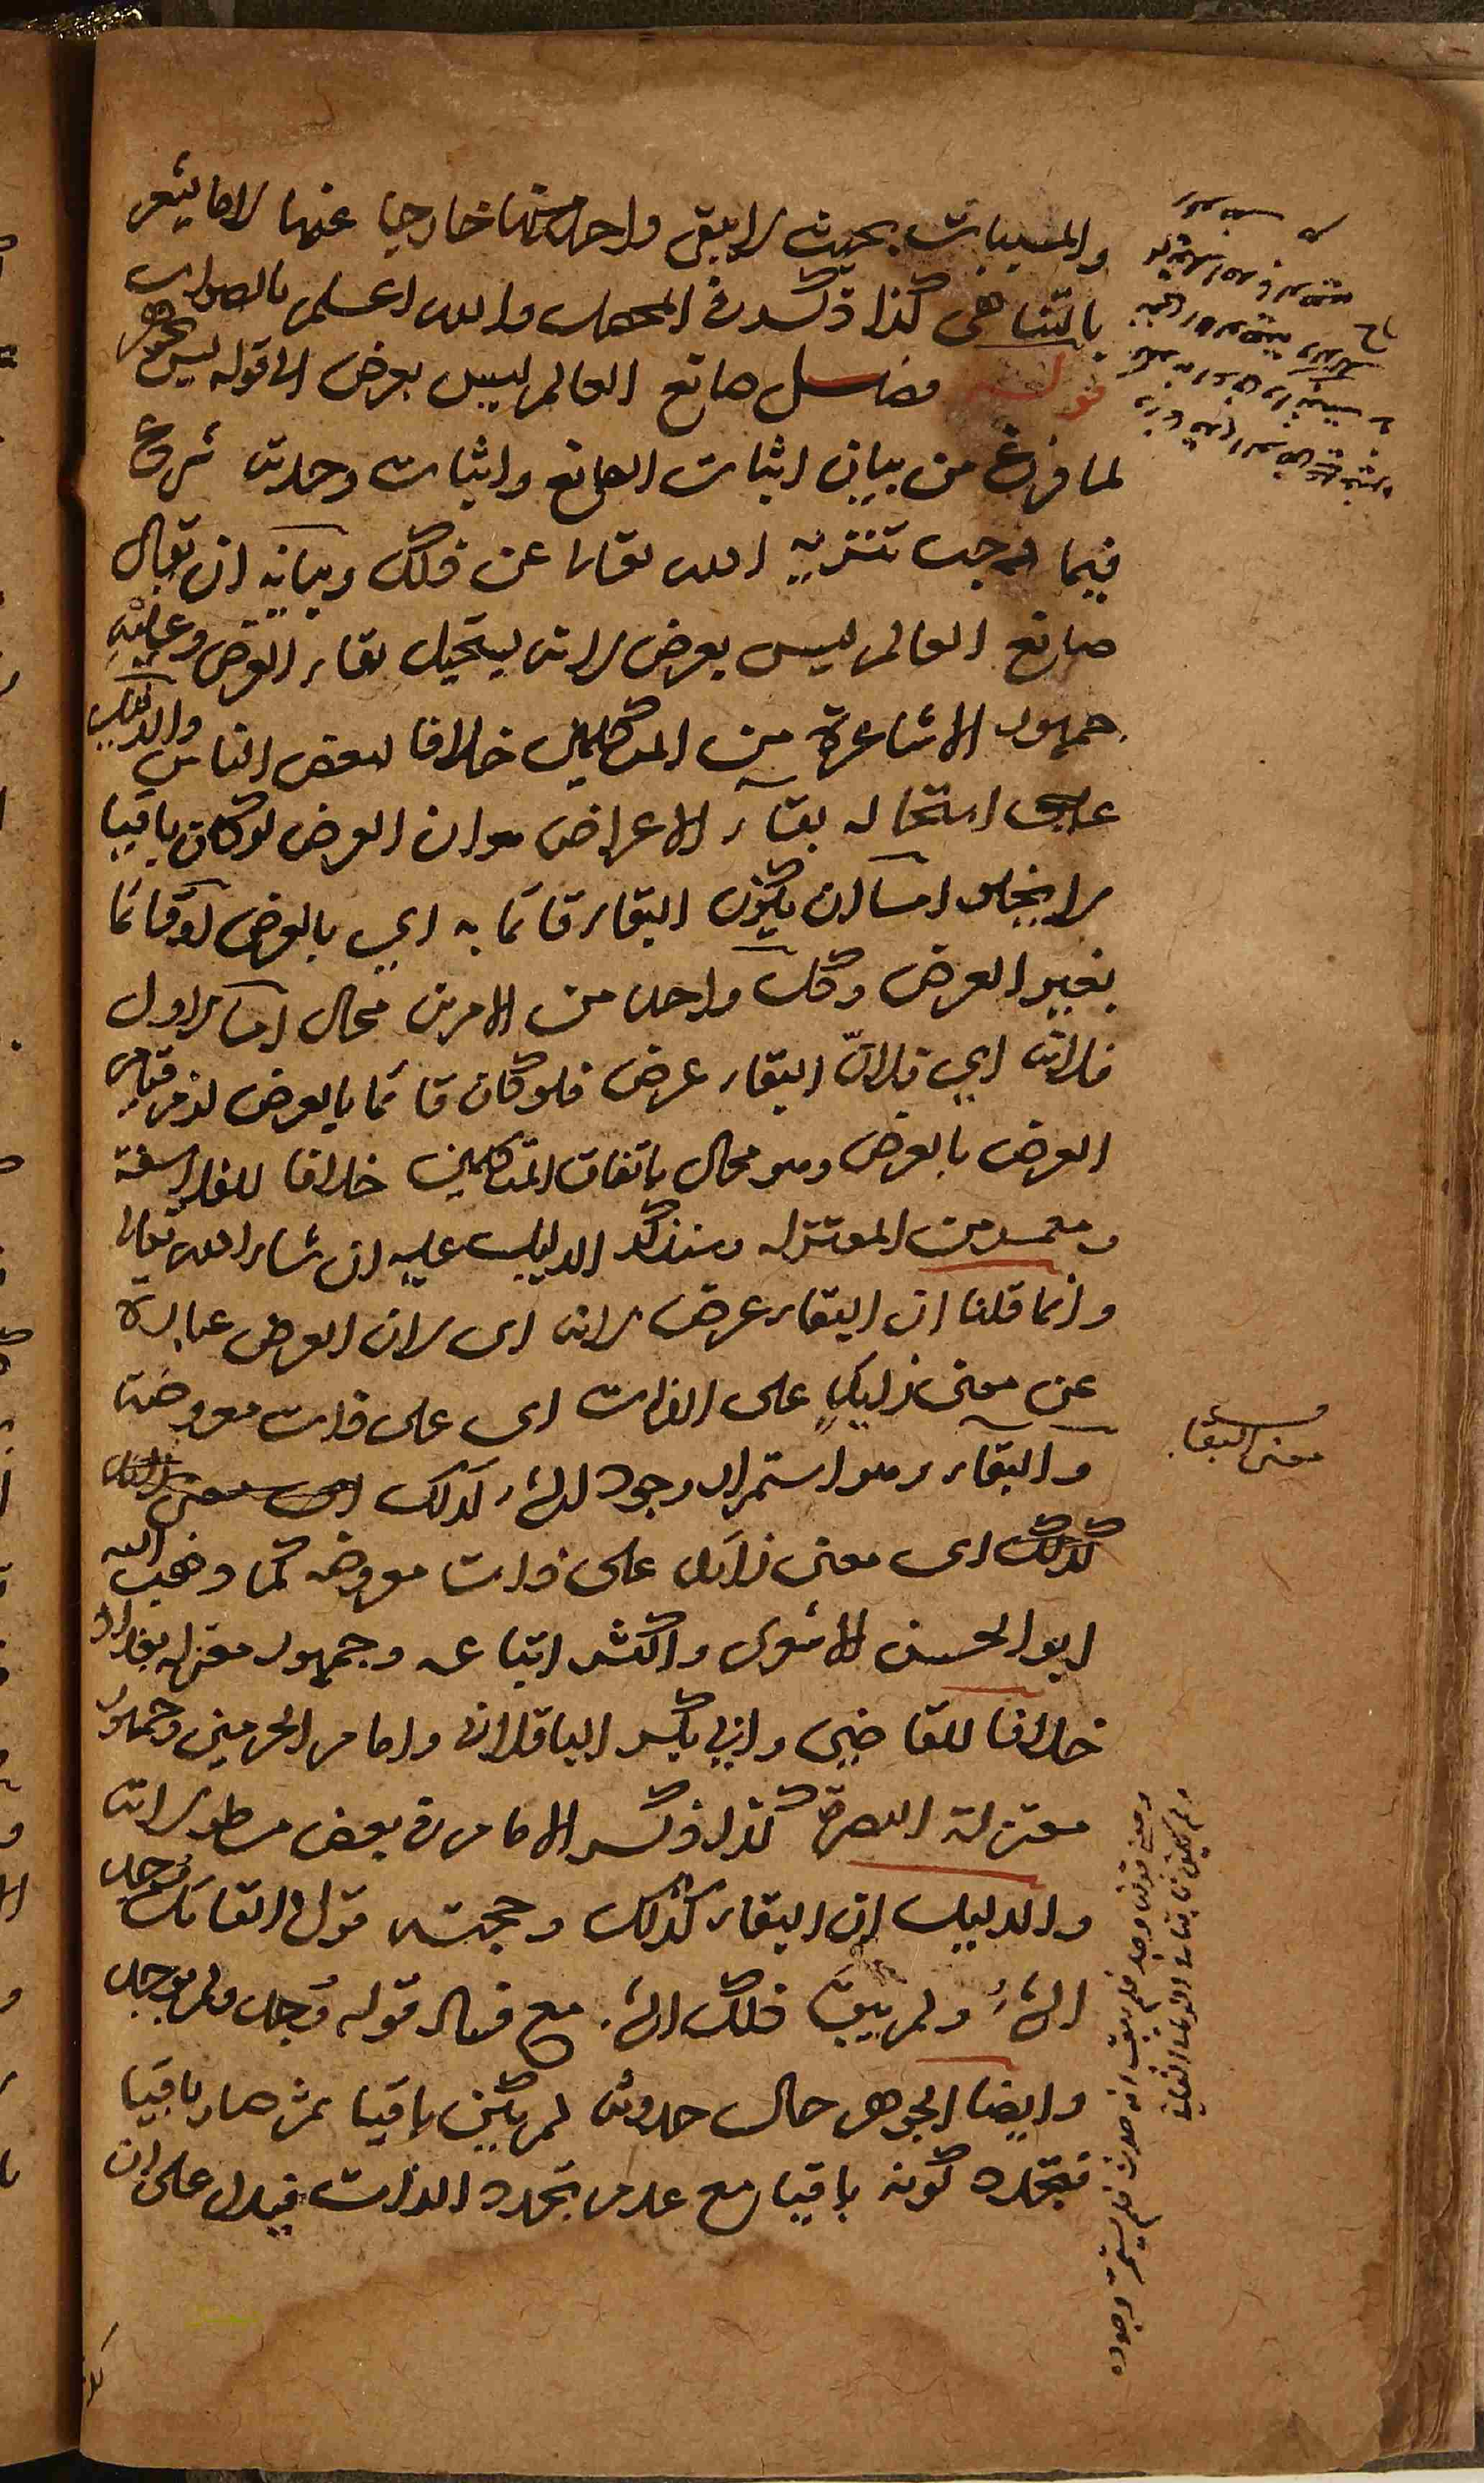 والمسببات بحيث لا يبقى واحد منها خارجا عنها لا ما يشعر
بالتناهى كذا ذكره فى المحصل والله اعلم بالصواب
قوله فصل صانع العالم ليس بعرض الى قوله ليس بجوهر
لما فرغ من بيان اثبات الصانع واثبات وحدته شرع
فيما وجب تنزيه الله تعالى عن ذلك وبيانه ان يقال
صانع العالم ليس بعرض لانه يستحيل بقاء العرض وعليه
جمهور الاشاعرة من المتكلمين خلافا لبعض الناس والدليل
على استحالة بقاء الاعراض هو ان العرض لو كان باقيا
لا يخلو اما ان يكون البقاء قائما به اي بالعرض او قائما
بغير العرض وكل واحد من الامرين محال اما الاول
فلانه اي فلان البقاء عرض فلو كان قائما بالعرض لزم قيام
العرض بالعرض وهو محال باتفاق المتكلمين خلافا للفلاسفة
ومعمر من المعتزلة وسنذكر الدليل عليه ان شاء الله تعالى
وانما قلنا ان البقاء عرض لانه اى لان العرض عبارة
عن معنى زايد على الذات اى على ذات معروضة
والبقاء وهو استمرار وجود الشئ كذلك اى معنى
كذلك اى معنى زائد على ذات معروضه كما ذهب اليه
ابو الحسن الاشعرى واكثر اتباعه وجمهور معتزلة بغداد
خلافا للقاضى وابى بكر الباقلانى وامام الحرمين وجمهور
معتزلة البصرة كذا ذكره الامام فى بعض مسطوراته
والدليل ان البقاء كذلك وحجته قول القائل وجد
الشئ ولم يبق ذلك الشئ مع فساد قوله وجد ولم يوجد
وايضا الجوهر حال حدوثه لم يكن باقيا ثم صار باقيا
فتجدد كونه باقيا مع عدم تجدد الذات فيدل على ان
معنى البقاء
ومعنى قولنا وجد فلم يبق انه حدث فلم يستمر وجوده
ولم يكن ثابتا فى الزمان الثانى